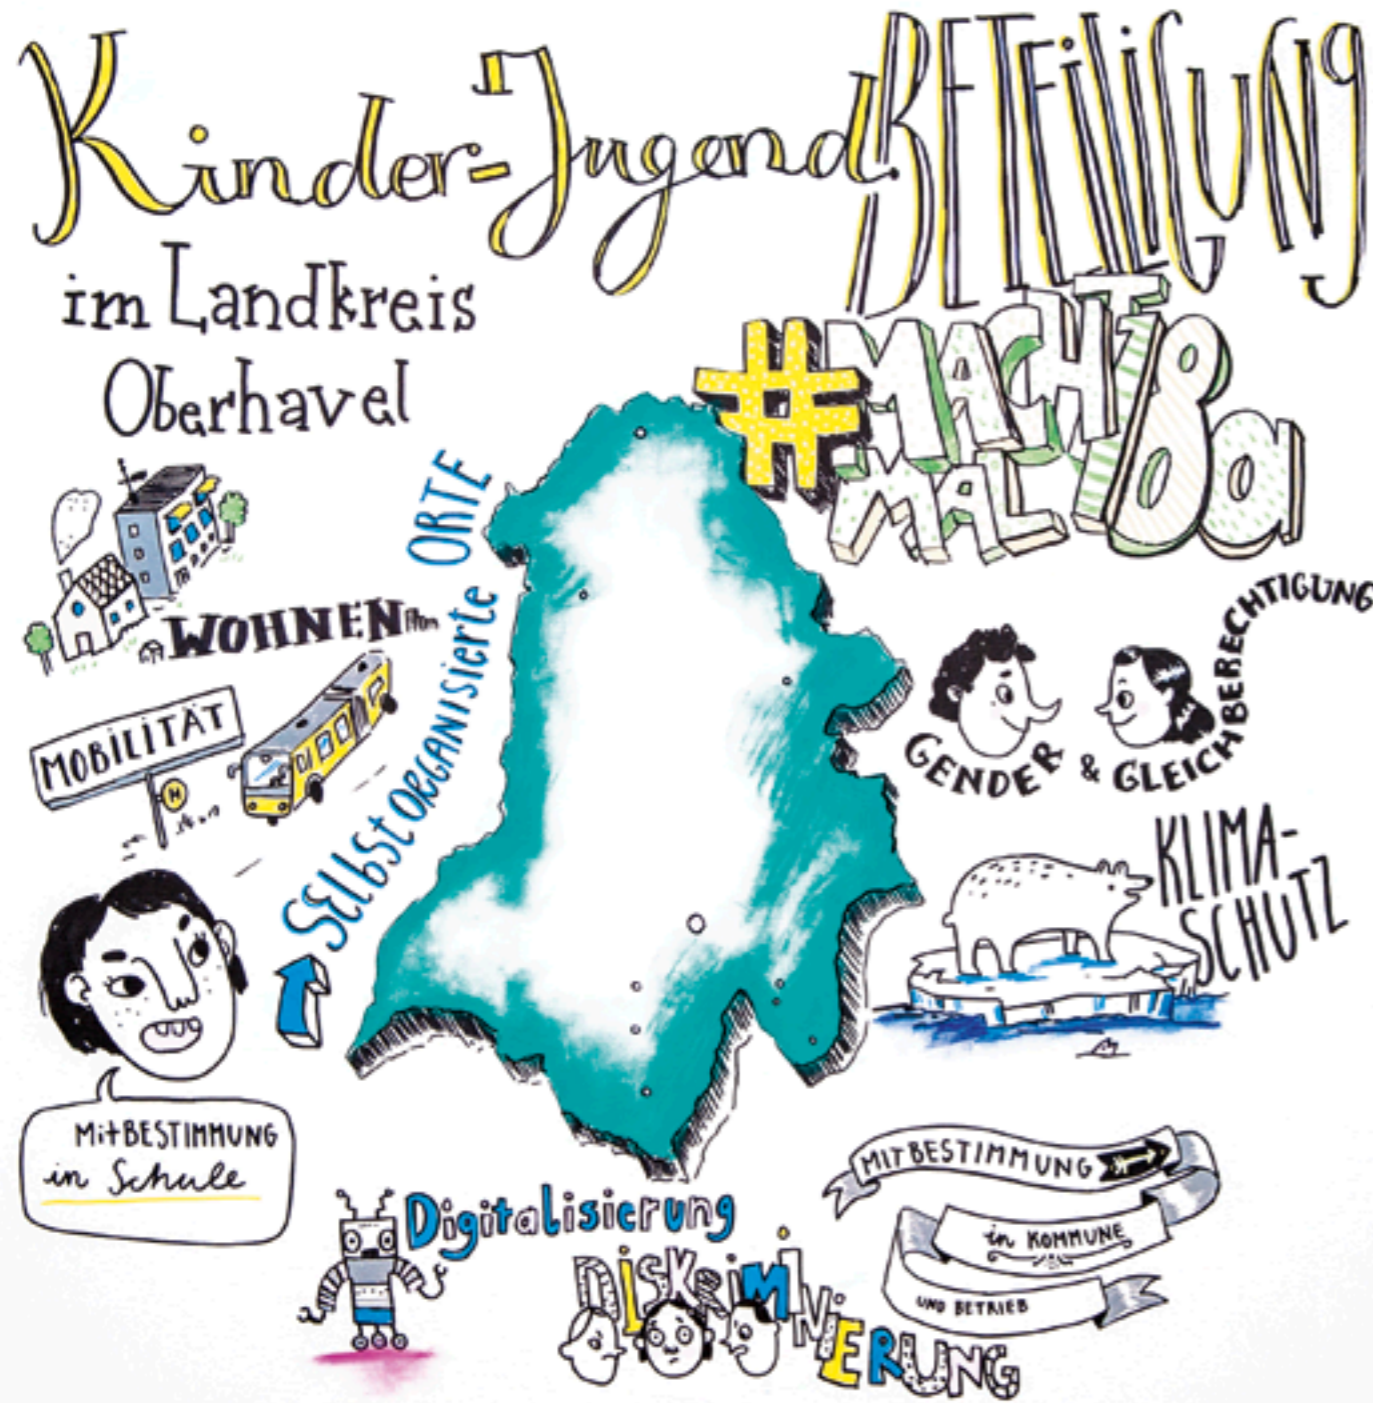 Kinder-Jugend.BETEILIGUNG
im Landkreis
Oberhavel
#MACHT
MAL
8a
WOHNEN
MOBILITÄT
H
SELbStORGANISIERTE ORTE
GENDER & GLEICHBERECHTIGUNG
KLIMA-
SCHUTZ
MitBESTIMMUNG
in Schule
Digitalisierung
DISKRIMINIERUNG
MITBESTIMMUNG
in KOMMUNE
UND BETRIEB